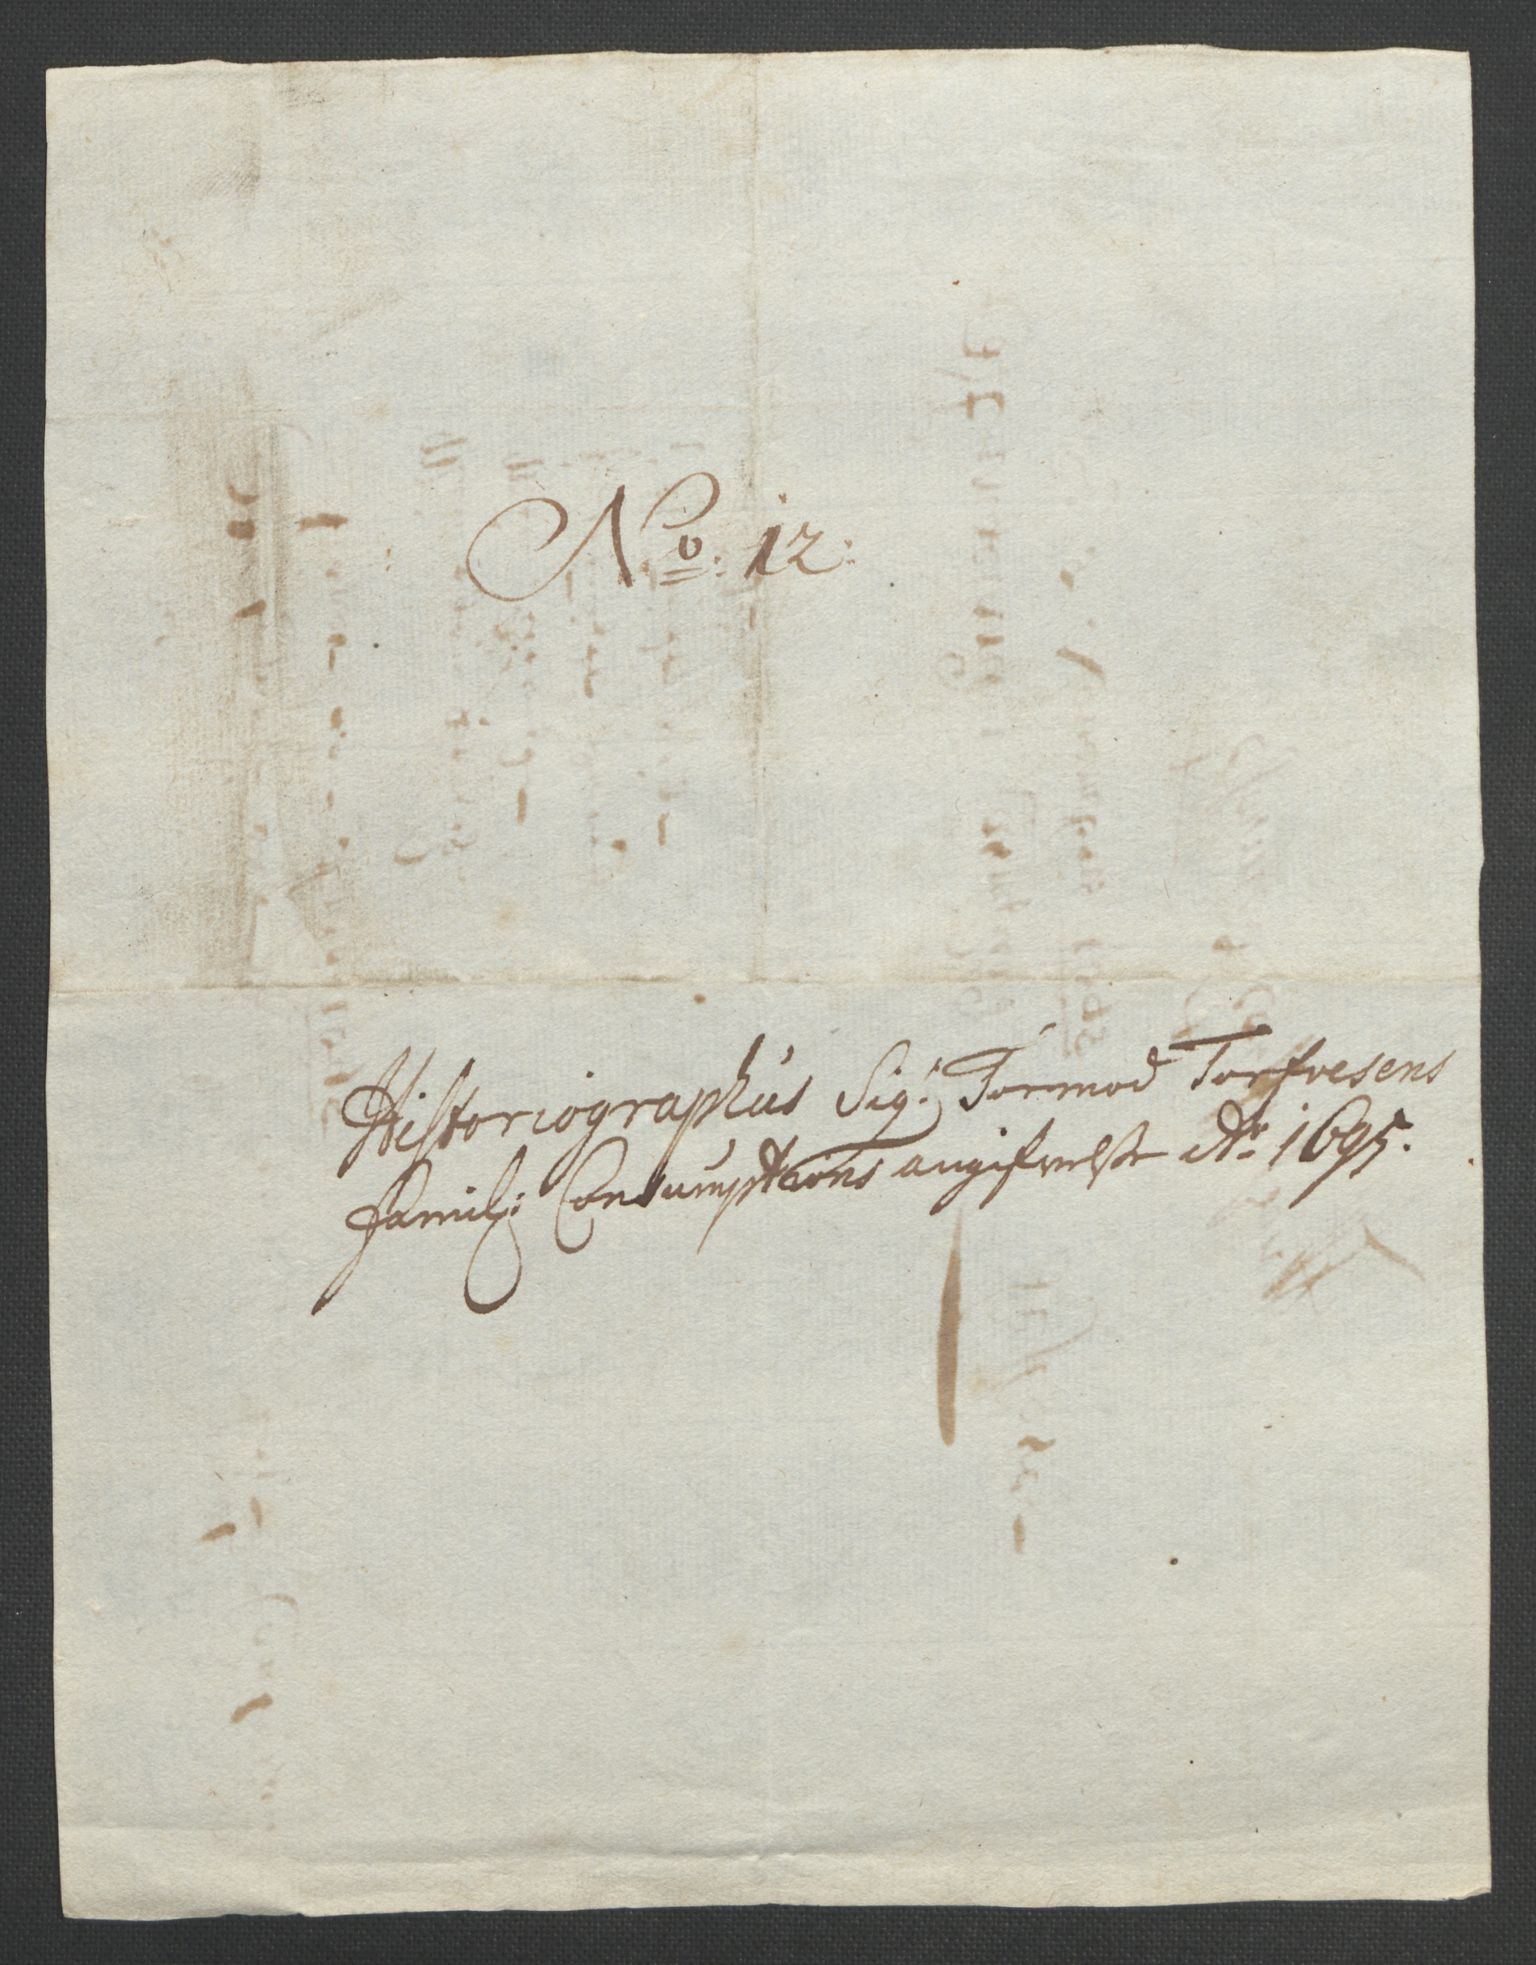 No: 12:
Historiographus Sigr. Tormod Torfvesens
famili: Consumptions angifvelse Ao 1695.